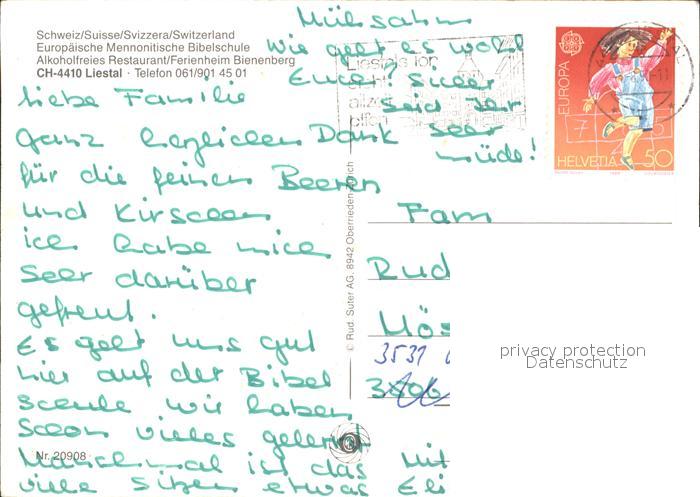 Schweiz/Suisse/Svizzera/Switzerland
Europäische Mennonitische Bibelschule
Alkoholfreies Restaurant/Ferienheim Bienenberg
CH-4410 Liestal · Telefon 061/901 45 01
liebe Familie
ganz herzlichen Dank
für die feinen Beeren
und Kirschen
ich habe mich
sehr darüber
gefreut.
Es geht uns gut
hier auf der Bibel
schule wir haben
schon vieles gelernt
Manchmal ist das
viele Sitzen etwas
Mühsahm
Wie geht es wohl
Euch? Sicher
Seid Ihr
sehr
müde!
Liestals Tor
HELVETIA 50
EUROPA
Fam
Rud
Mös
3531
© Rud. Suter AG, 8942 Oberrieden-Zürich
Nr. 20908
Mit
Eli
privacy protection
Datenschutz